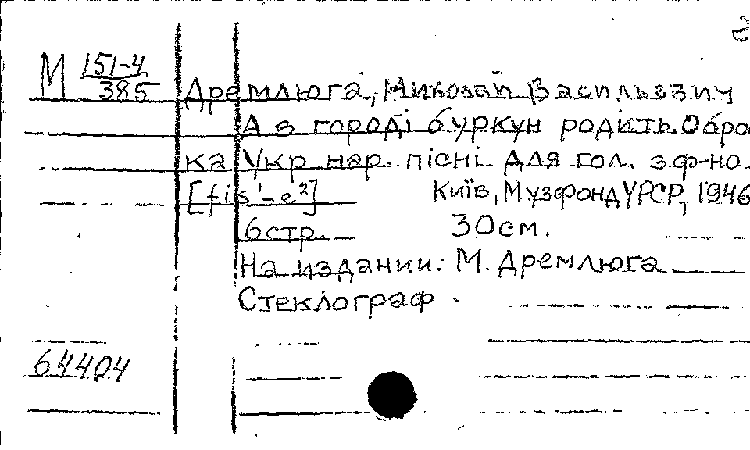 М 151-4
385
Дремлюга, Николай Васильевич
А в городі буркун родить. Обро
ка Укр нар. пісні для гол. з ф-но.
[fis'-e²] Київ, Музфонд УРСР, 1946
6 стр. 30 см.
На издании: М. Дремлюга
Стеклограф.
64404